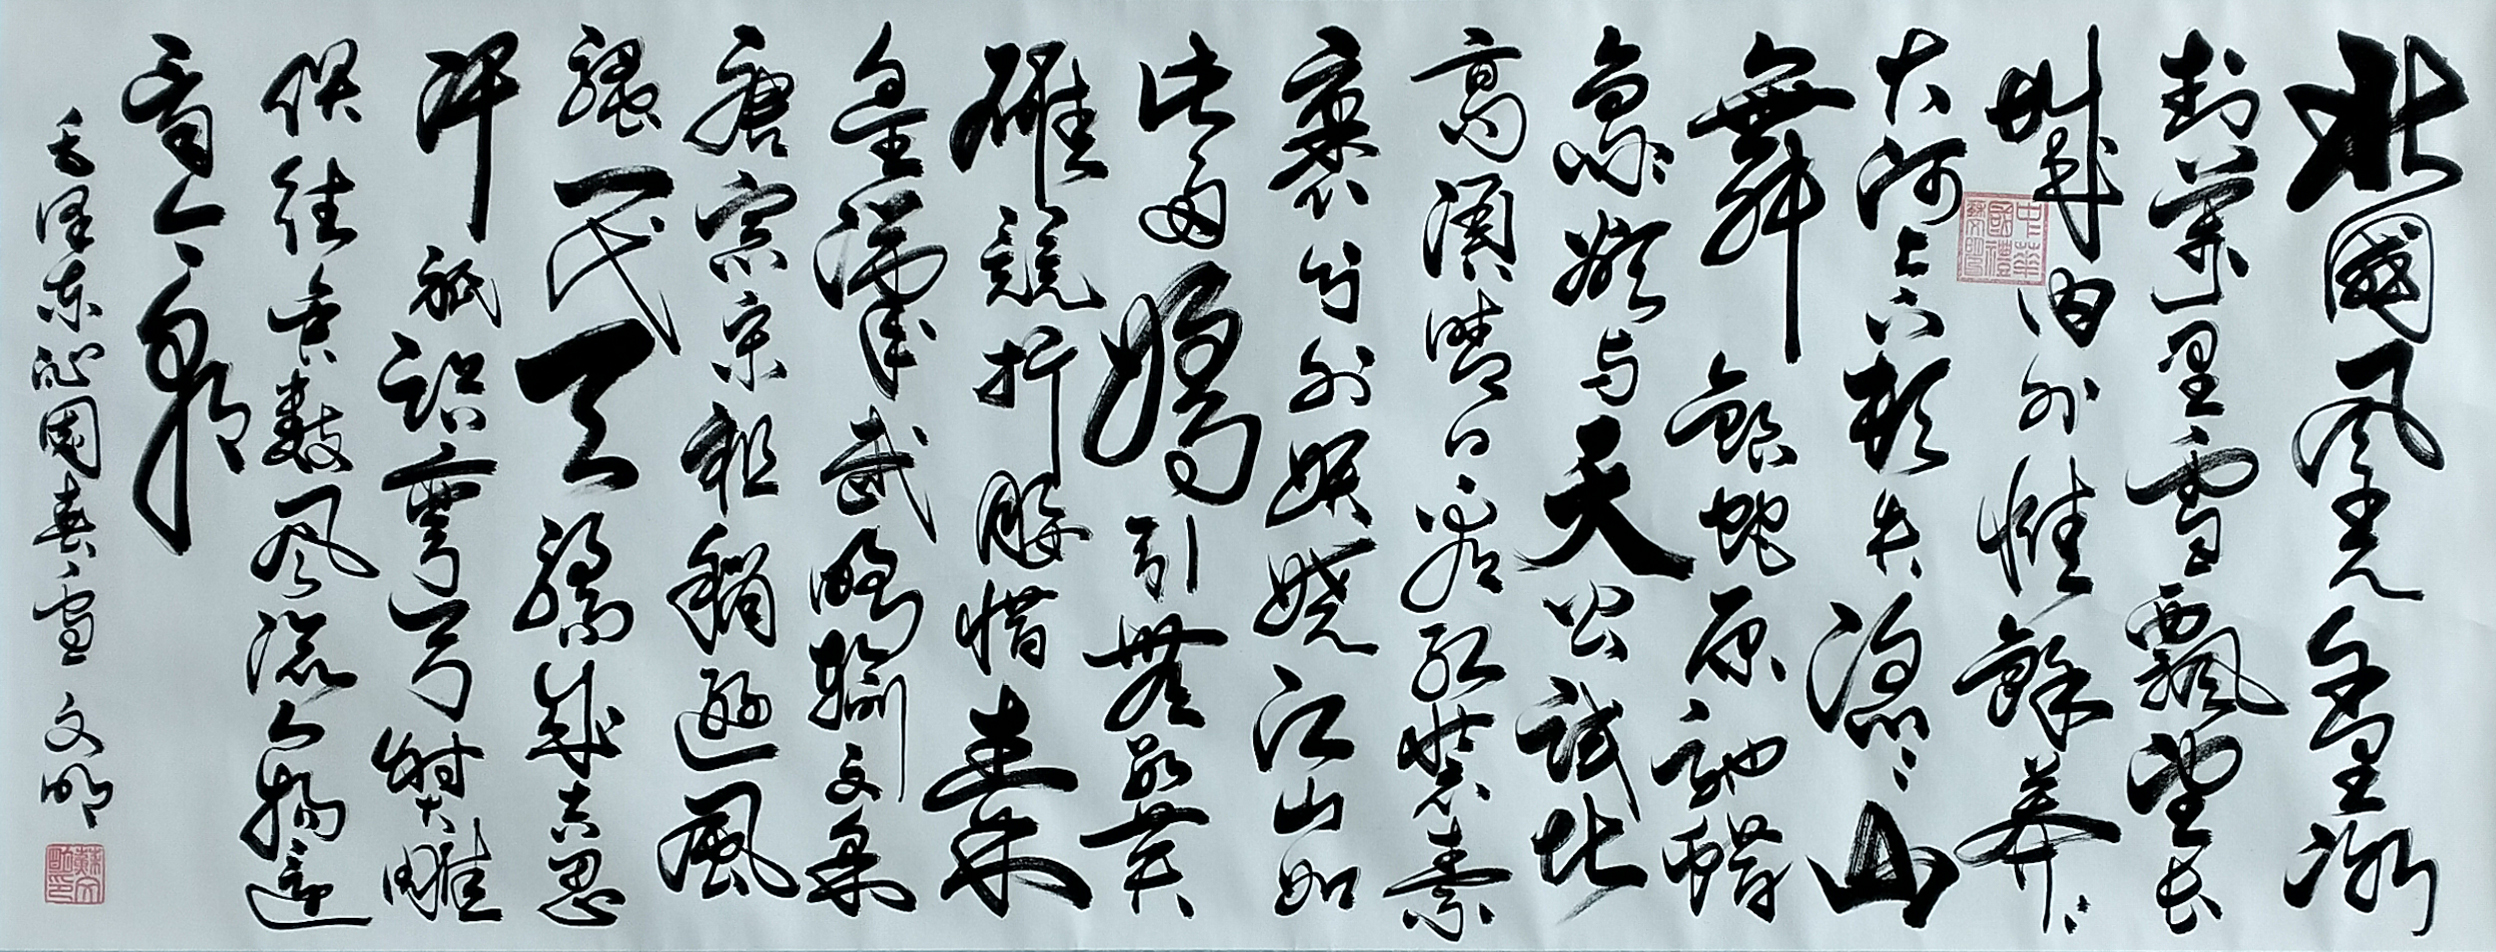 北國风光千里冰
封萬里雪飄望長
城内外惟餘莽々
大河上下頓失滔々山
舞銀蛇原馳蠟
象欲与天公試比
高須晴日看紅裝素
裹分外妖嬈江山如
此多嬌引無數英
雄競折腰惜秦
皇漢武略輸文采
唐宗宋祖稍遜風
騷一代天驕成吉思
汗祇識彎弓射大雕
俱往矣數风流人物還
看今朝
毛泽东沁園春雪 文明
中華國禮蘇文明
蘇文明印